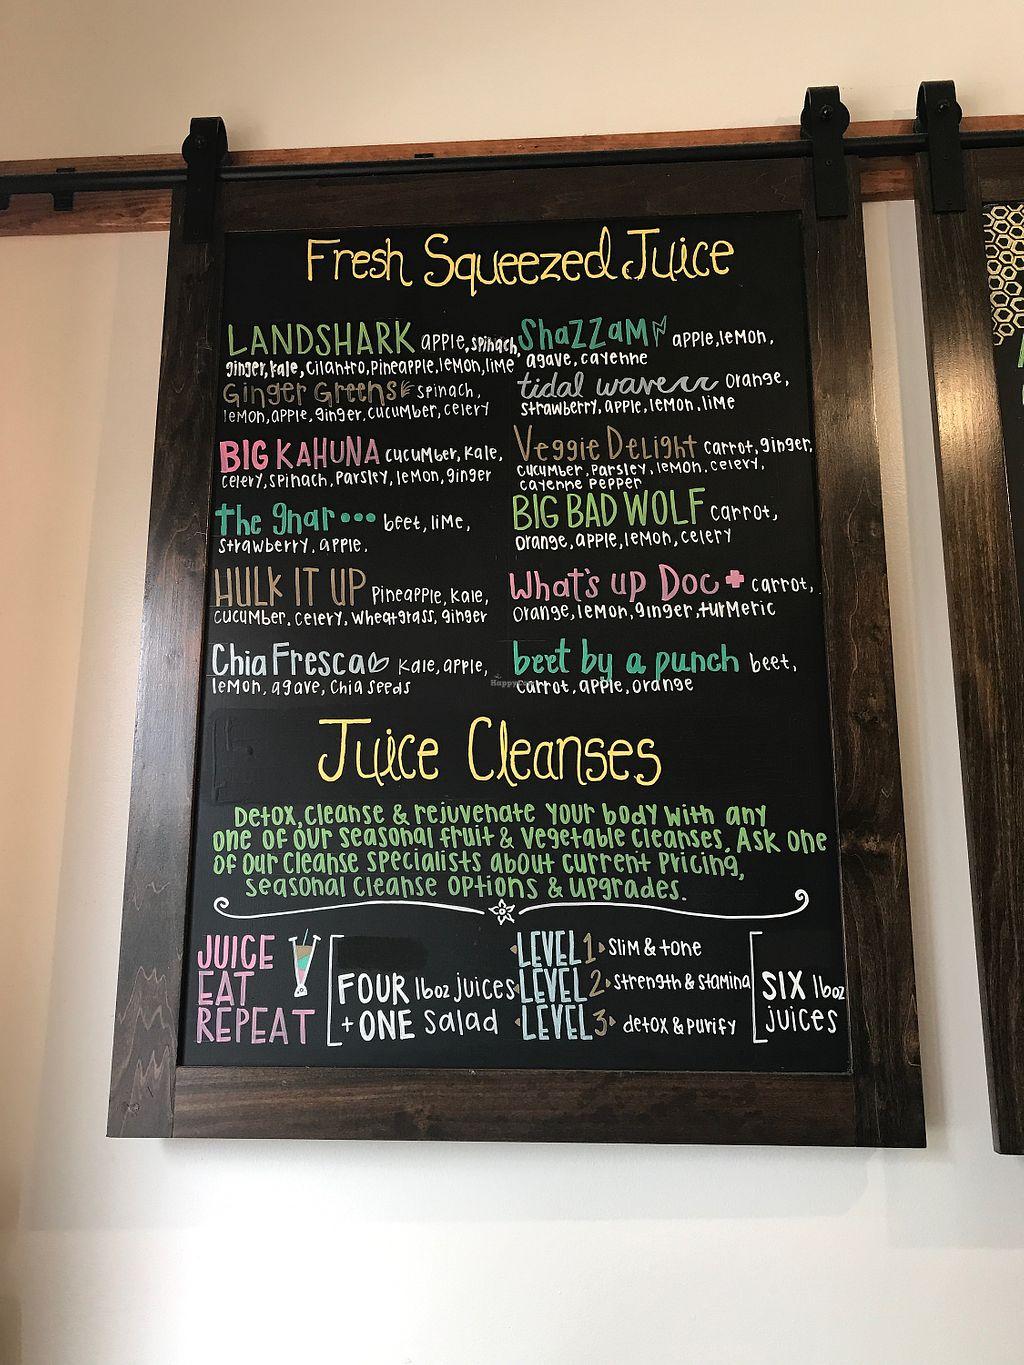 Fresh Squeezed Juice
LANDSHARK apple, spinach,
ginger, kale, cilantro, pineapple, lemon, lime
Ginger Greens spinach,
lemon, apple, ginger, cucumber, celery
BIG KAHUNA cucumber, kale,
celery, spinach, parsley, lemon, ginger
the gnar... beet, lime,
strawberry, apple.
HULK IT UP pineapple, kale,
cucumber, celery, wheatgrass, ginger
Chia Fresca kale, apple,
lemon, agave, chia seeds
ShaZZaM apple, lemon,
agave, cayenne
tidal wave orange,
strawberry, apple, lemon, lime
Veggie Delight carrot, ginger,
cucumber, parsley, lemon, celery,
cayenne pepper
BIG BAD WOLF carrot,
orange, apple, lemon, celery
What's up Doc carrot,
orange, lemon, ginger, turmeric
beet by a punch beet,
carrot, apple, orange
HappyCow
Juice Cleanses
Detox, cleanse & rejuvenate your body with any
one of our seasonal fruit & vegetable cleanses. Ask one
of our cleanse specialists about current pricing,
seasonal cleanse options & upgrades.
JUICE
EAT
REPEAT
FOUR 16oz juices
+ ONE salad
LEVEL 1 slim & tone
LEVEL 2 strength & stamina
LEVEL 3 detox & purify
SIX 16oz
juices